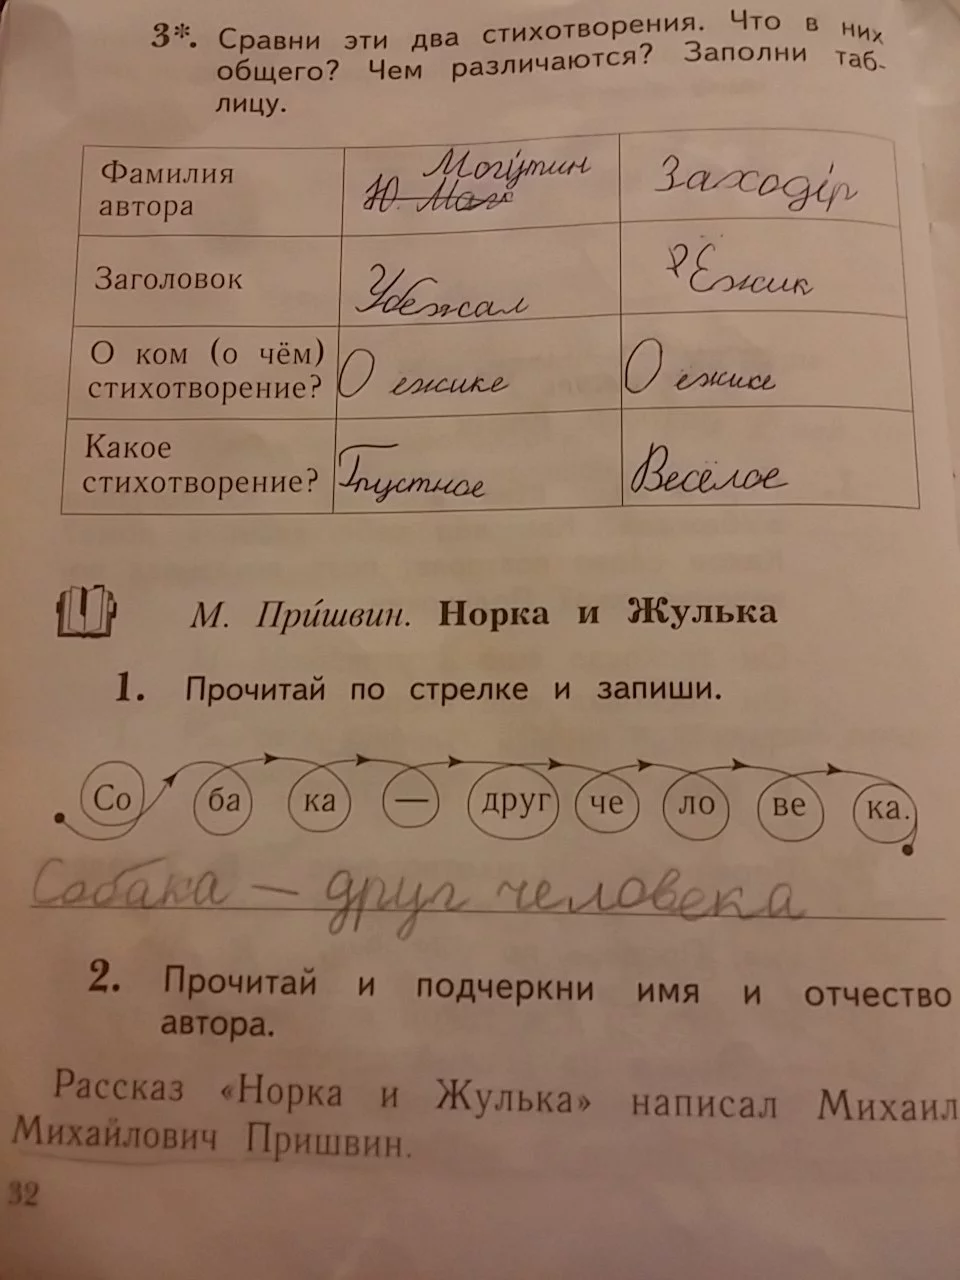 3*. Сравни эти два стихотворения. Что в них
общего? Чем различаются? Заполни таб-
лицу.
Фамилия
автора
Могутин
Ю. Мог
Заходір
Заголовок
Убежал
Ёжик
О ком (о чём)
стихотворение?
О ежике
О ёжике
Какое
стихотворение?
Грустное
Весёлое
М. При́швин. Норка и Жулька
1. Прочитай по стрелке и запиши.
Со ба ка — друг че ло ве ка.
Собака — друг человека
2. Прочитай и подчеркни имя и отчество
автора.
Рассказ «Норка и Жулька» написал Михаил
Михайлович Пришвин.
32